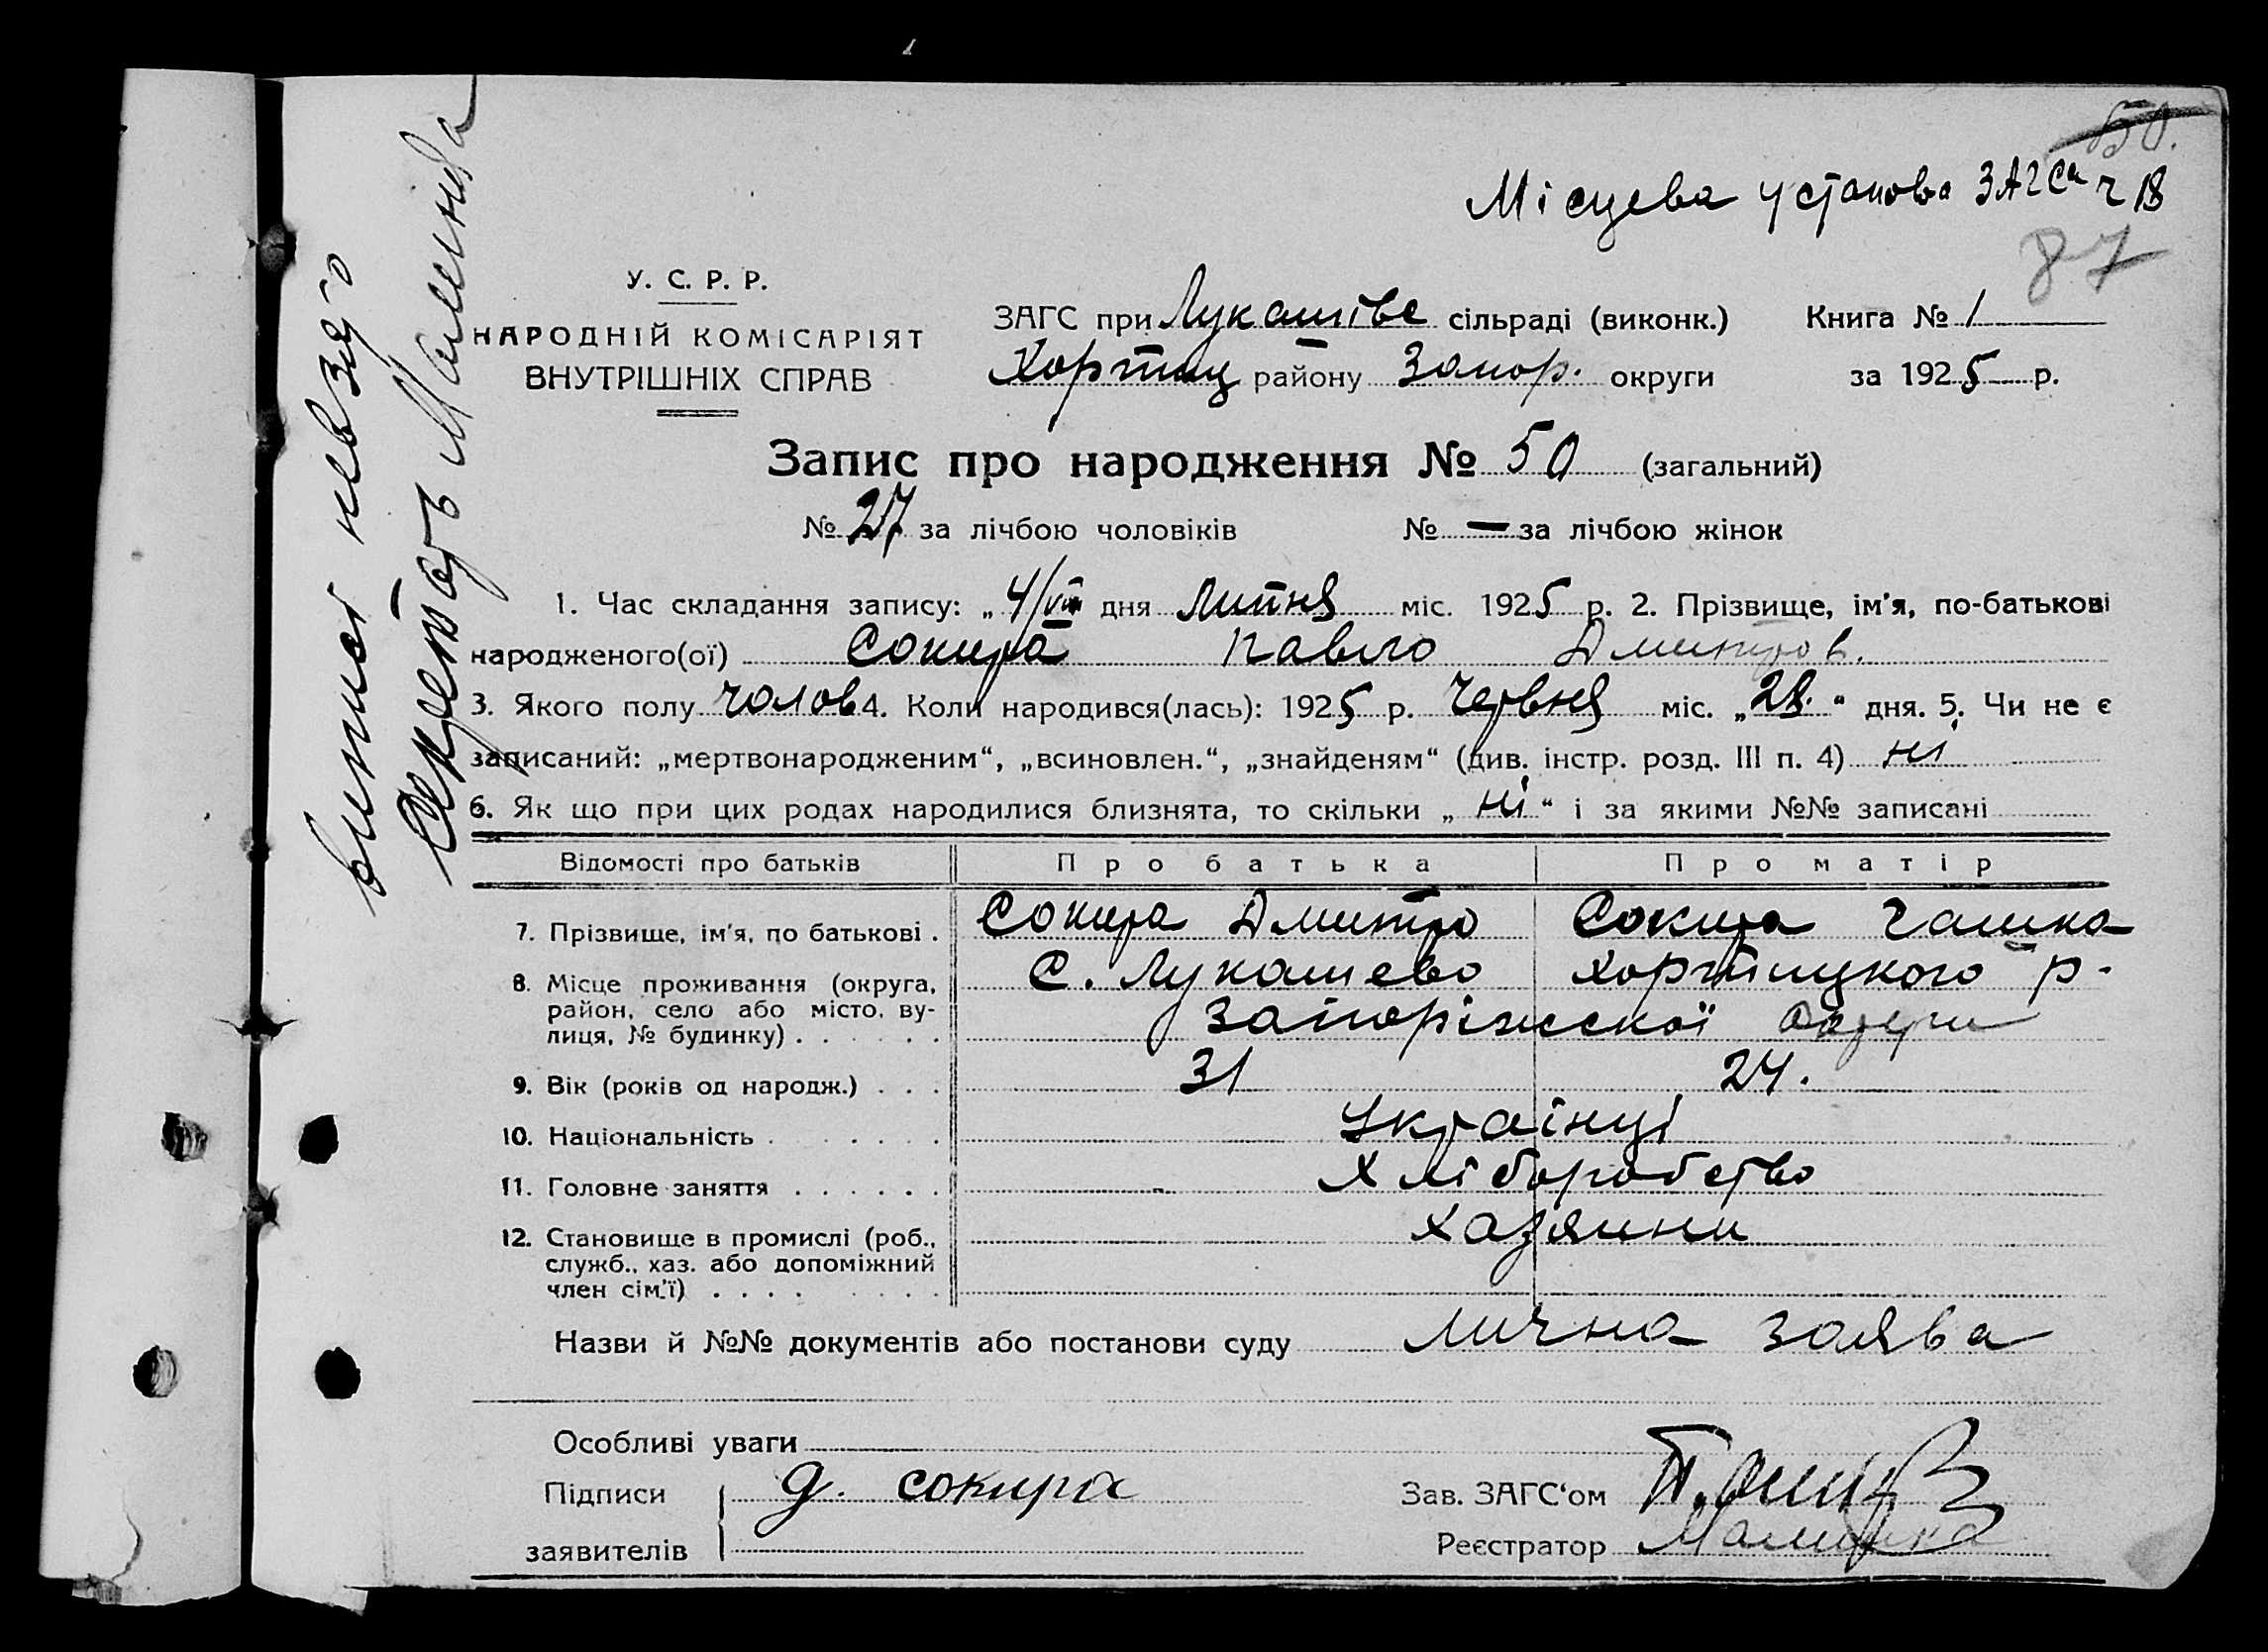 50.
Місцева установа ЗАГСа ч 18
87
У. С. Р. Р.
НАРОДНІЙ КОМІСАРІЯТ
ВНУТРІШНІХ СПРАВ
ЗАГС при Лукашіве сільраді (виконк.) Книга № 1
Хортиц району Запор. округи за 1925 р.
Запис про народження № 50 (загальний)
№ 27 за лічбою чоловіків № — за лічбою жінок
1. Час складання запису: „4/VIII дня Липня міс. 1925 р. 2. Прізвище, ім'я, по-батькові
народженого(ої) Сокира Павло Дмитров.
3. Якого полу чолов 4. Коли народився(лась): 1925 р. Червня міс. „28.“ дня. 5. Чи не є
записаний: „мертвонародженим“, „всиновлен.“, „знайденям“ (див. інстр. розд. III п. 4) ні
6. Як що при цих родах народилися близнята, то скільки „ні“ і за якими №№ записані
Відомості про батьків Про батька Про матір
7. Прізвище, ім'я, по батькові . Сокира Дмитро Сокира
8. Місце проживання (округа, район, село або місто, вулиця, № будинку) . . . . . . С. Лукашево Хортицкого р.
Запоріжскої Округи
9. Вік (років од народж.) . . . 31 24.
10. Національність . . . . . . . Українці
11. Головне заняття . . . . . . Хліборобство
12. Становище в промислі (роб., служб., хаз. або допоміжний член сім'ї) . . . . Хазяини
Назви й №№ документів або постанови суду лична заява
Особливі уваги
Підписи заявителів Д. Сокира
Зав. ЗАГС'ом
Реєстратор
витяг
Секретарь